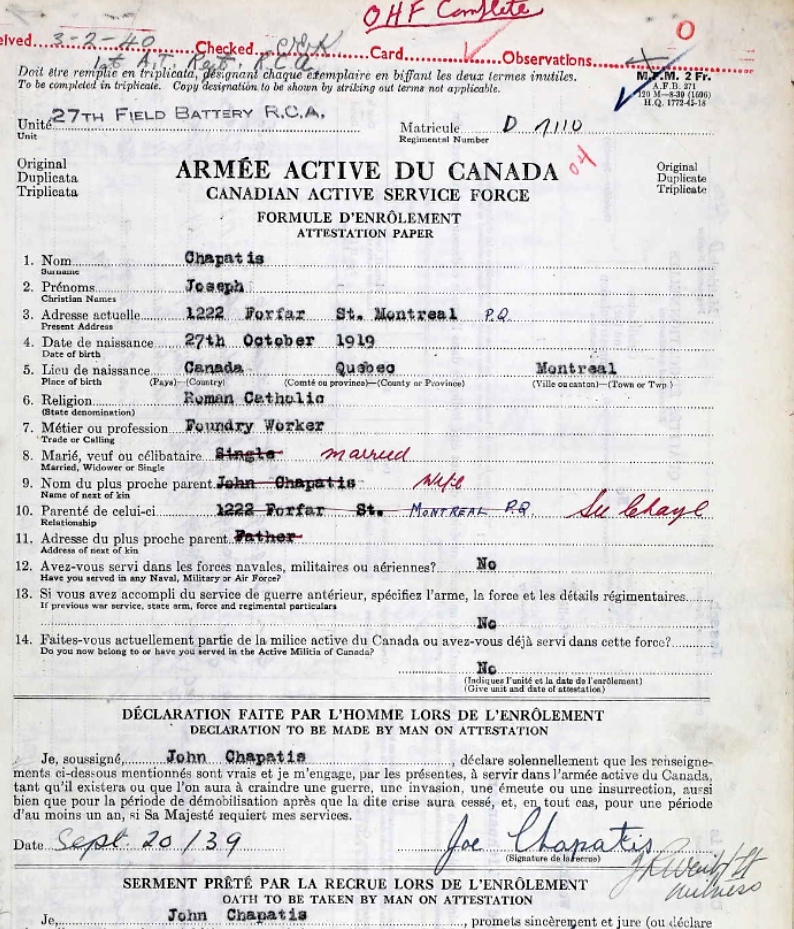 OHF Complete
eived 3-2-40 Checked Card Observations O
1st A.T. Regt. R.C.A.
Doit être remplie en triplicata, désignant chaque exemplaire en biffant les deux termes inutiles.
To be completed in triplicate. Copy designation to be shown by striking out terms not applicable.
M.F.M. 2 Fr.
A.F.B. 271
120 M—8-39 (1696)
H.Q. 1772-45-18
Unité 27TH FIELD BATTERY R.C.A.
Unit
Matricule D 7110
Regimental Number
04
Original
Duplicata
Triplicata
ARMÉE ACTIVE DU CANADA
CANADIAN ACTIVE SERVICE FORCE
Original
Duplicate
Triplicate
FORMULE D'ENRÔLEMENT
ATTESTATION PAPER
1. Nom Chapatis
Surname
2. Prénoms Joseph
Christian Names
3. Adresse actuelle 1222 Forfar St. Montreal P.Q.
Present Address
4. Date de naissance 27th October 1919
Date of birth
5. Lieu de naissance Canada Quebec Montreal
Place of birth (Pays)—(Country) (Comté ou province)—(County or Province) (Ville ou canton)—(Town or Twp.)
6. Religion Roman Catholic
(State denomination)
7. Métier ou profession Foundry Worker
Trade or Calling
8. Marié, veuf ou célibataire Single married
Married, Widower or Single
9. Nom du plus proche parent John Chapatis wife
Name of next of kin
10. Parenté de celui-ci 1222 Forfar St. MONTREAL P.Q.
Relationship
11. Adresse du plus proche parent Father
Address of next of kin
12. Avez-vous servi dans les forces navales, militaires ou aériennes? No
Have you served in any Naval, Military or Air Force?
13. Si vous avez accompli du service de guerre antérieur, spécifiez l'arme, la force et les détails régimentaires
If previous war service, state arm, force and regimental particulars
No
14. Faites-vous actuellement partie de la milice active du Canada ou avez-vous déjà servi dans cette force?
Do you now belong to or have you served in the Active Militia of Canada?
No
(Indiquez l'unité et la date de l'enrôlement)
(Give unit and date of attestation)
DÉCLARATION FAITE PAR L'HOMME LORS DE L'ENRÔLEMENT
DECLARATION TO BE MADE BY MAN ON ATTESTATION
Je, soussigné, John Chapatis, déclare solennellement que les renseigne-
ments ci-dessous mentionnés sont vrais et je m'engage, par les présentes, à servir dans l'armée active du Canada,
tant qu'il existera ou que l'on aura à craindre une guerre, une invasion, une émeute ou une insurrection, aussi
bien que pour la période de démobilisation après que la dite crise aura cessé, et, en tout cas, pour une période
d'au moins un an, si Sa Majesté requiert mes services.
Date Sept. 20/39 Joe Chapatis
(Signature de la recrue)
witness
SERMENT PRÊTÉ PAR LA RECRUE LORS DE L'ENRÔLEMENT
OATH TO BE TAKEN BY MAN ON ATTESTATION
Je, John Chapatis, promets sincèrement et jure (ou déclare